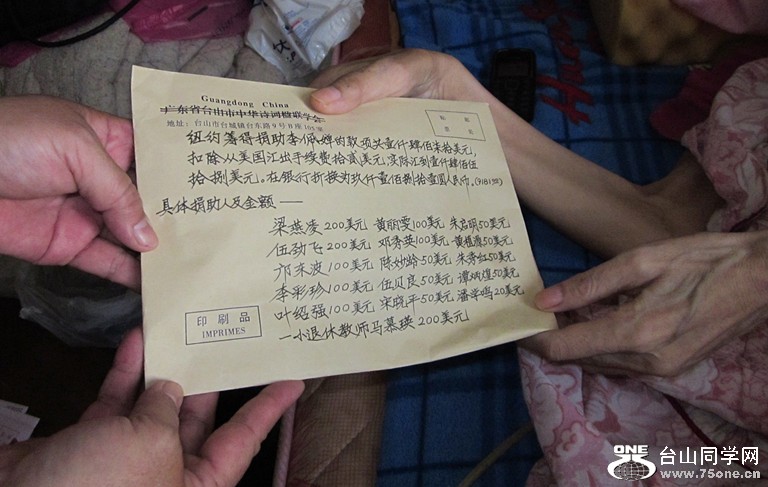 Guangdong China
广东省台山市中华诗词楹联学会
地址：台山市台城镇台东路9号B座105室
纽约筹得捐助李佩婵的款项共壹仟肆佰柒拾美元，
扣除从美国汇出手续费拾贰美元，实际汇到壹仟肆佰伍
拾捌美元。在银行折换为玖仟壹佰捌拾壹圆人民币。(9181元)
具体捐助人及金额——
梁燕凌200美元 黄丽雯100美元 朱启明50美元
伍劲飞200美元 邓秀英100美元 黄植 50美元
邝东波100美元 陈妙龄50美元 朱秀红50美元
李彩珍100美元 伍贝良50美元 谭炳煌50美元
叶绍强100美元 宋晓平50美元 潘学鸣20美元
一小退休教师马慕瑛200美元
印刷品
IMPRIMES
ONE
75
台山同学网
www.75one.cn